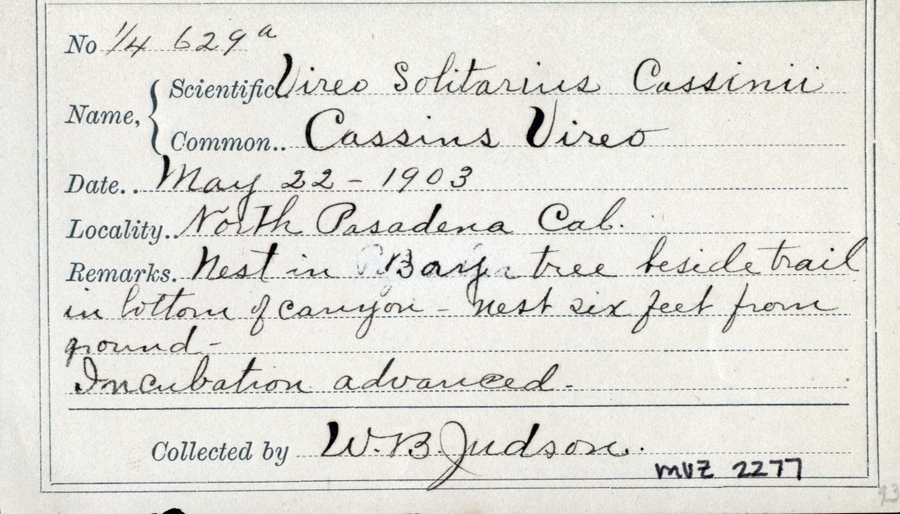 No 1/4 629a
Name, { Scientific. Vireo Solitarius Cassinii
Common.. Cassins Vireo
Date.. May 22 - 1903
Locality.. North Pasadena Cal.
Remarks. Nest in Bay tree beside trail
in bottom of canyon - Nest six feet from
ground -
Incubation advanced -
Collected by W. B. Judson.
MVZ 2277